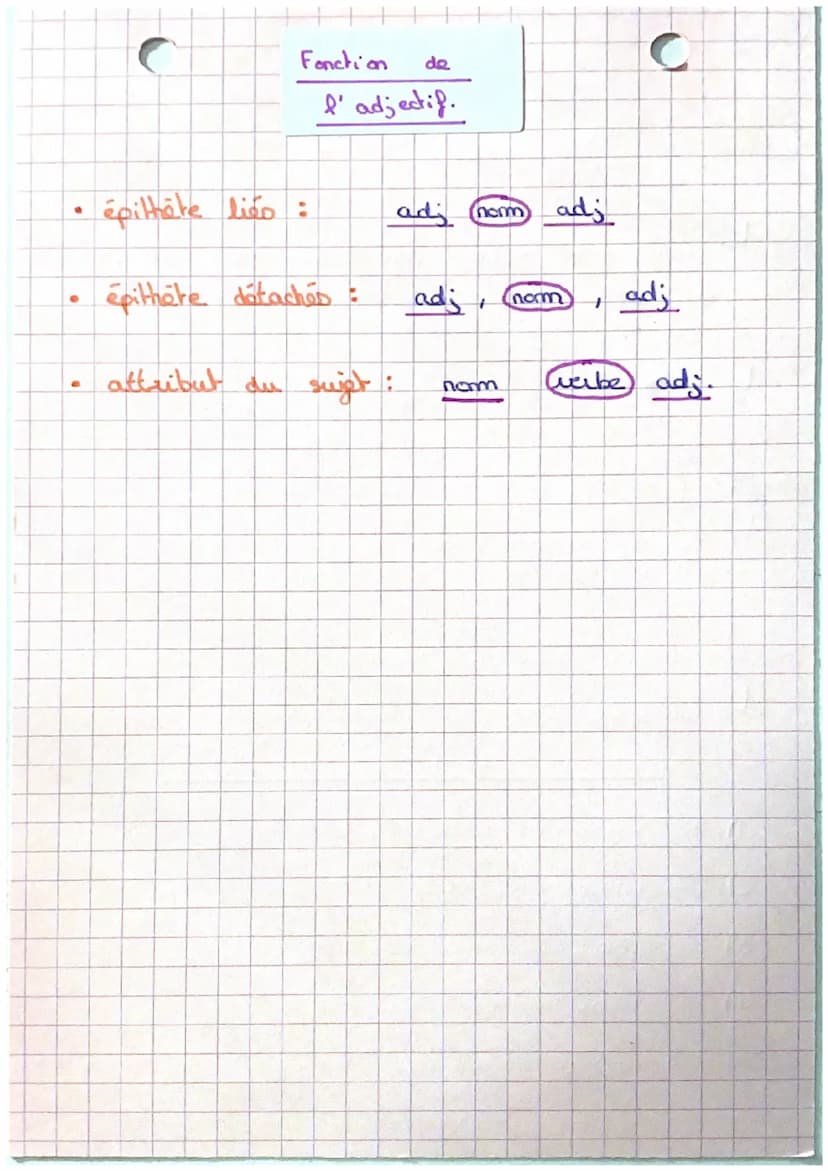 Fonction de
l'adjectif.
• épithète liés : adj nom adj
• épithète détachés : adj , nom , adj
• attribut du sujet : nom verbe adj.